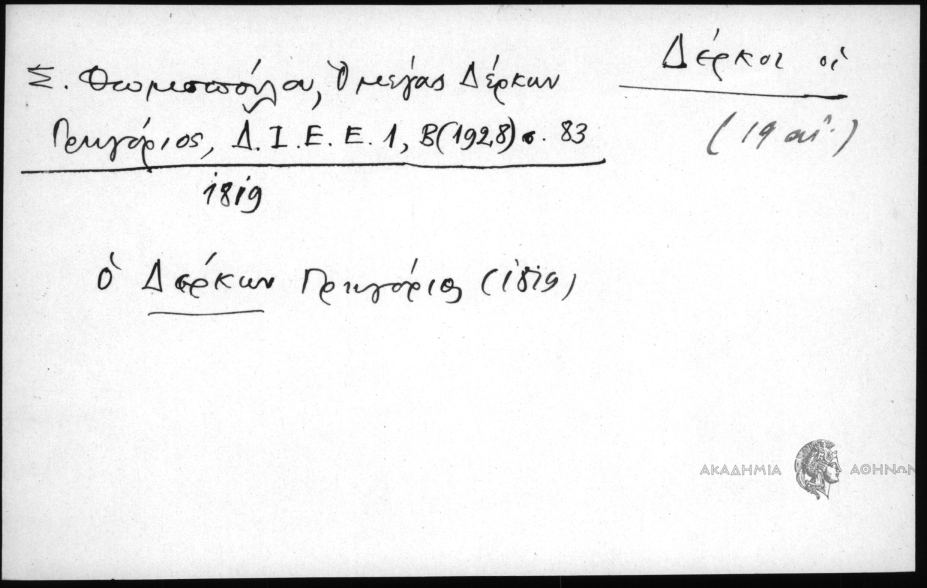 Δέρκοι οἱ
(19 αἰ.)
Σ. Θωμοπούλου, Ὁ μέγας Δέρκων
Γρηγόριος, Δ.Ι.Ε.Ε. 1, Β(1928) σ. 83
1819
ὁ Δέρκων Γρηγόριος (1819)
ΑΚΑΔΗΜΙΑ ΑΘΗΝΩΝ